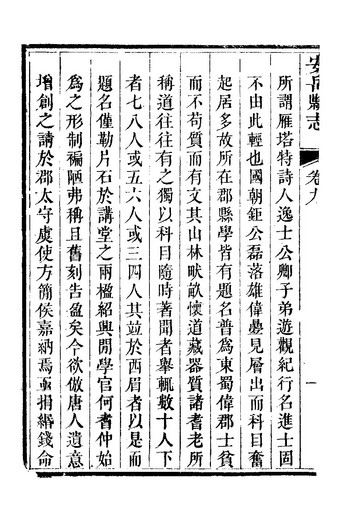 安岳縣志
卷九
一
所謂雁塔特詩人逸士公卿子弟遊觀紀行名進士固
不由此輕也國朝鉅公磊落雄偉疊見層出而科目奮
起居多故所在郡縣學皆有題名普為東蜀偉郡士貧
而不苟質而有文其山林畎畝懷道藏器質諸耆老所
稱道往往有之獨以科目隨時著聞者舉輒數十人下
者七八人或五六人或三四人其竝於西眉者以是而
題名僅勒片石於講堂之兩楹紹興間學官何耆仲始
為之形制褊陋弗稱且舊刻告盈矣今欲倣唐人遺意
增創之請於郡太守虞使方簡侯嘉納焉亟捐緡錢命